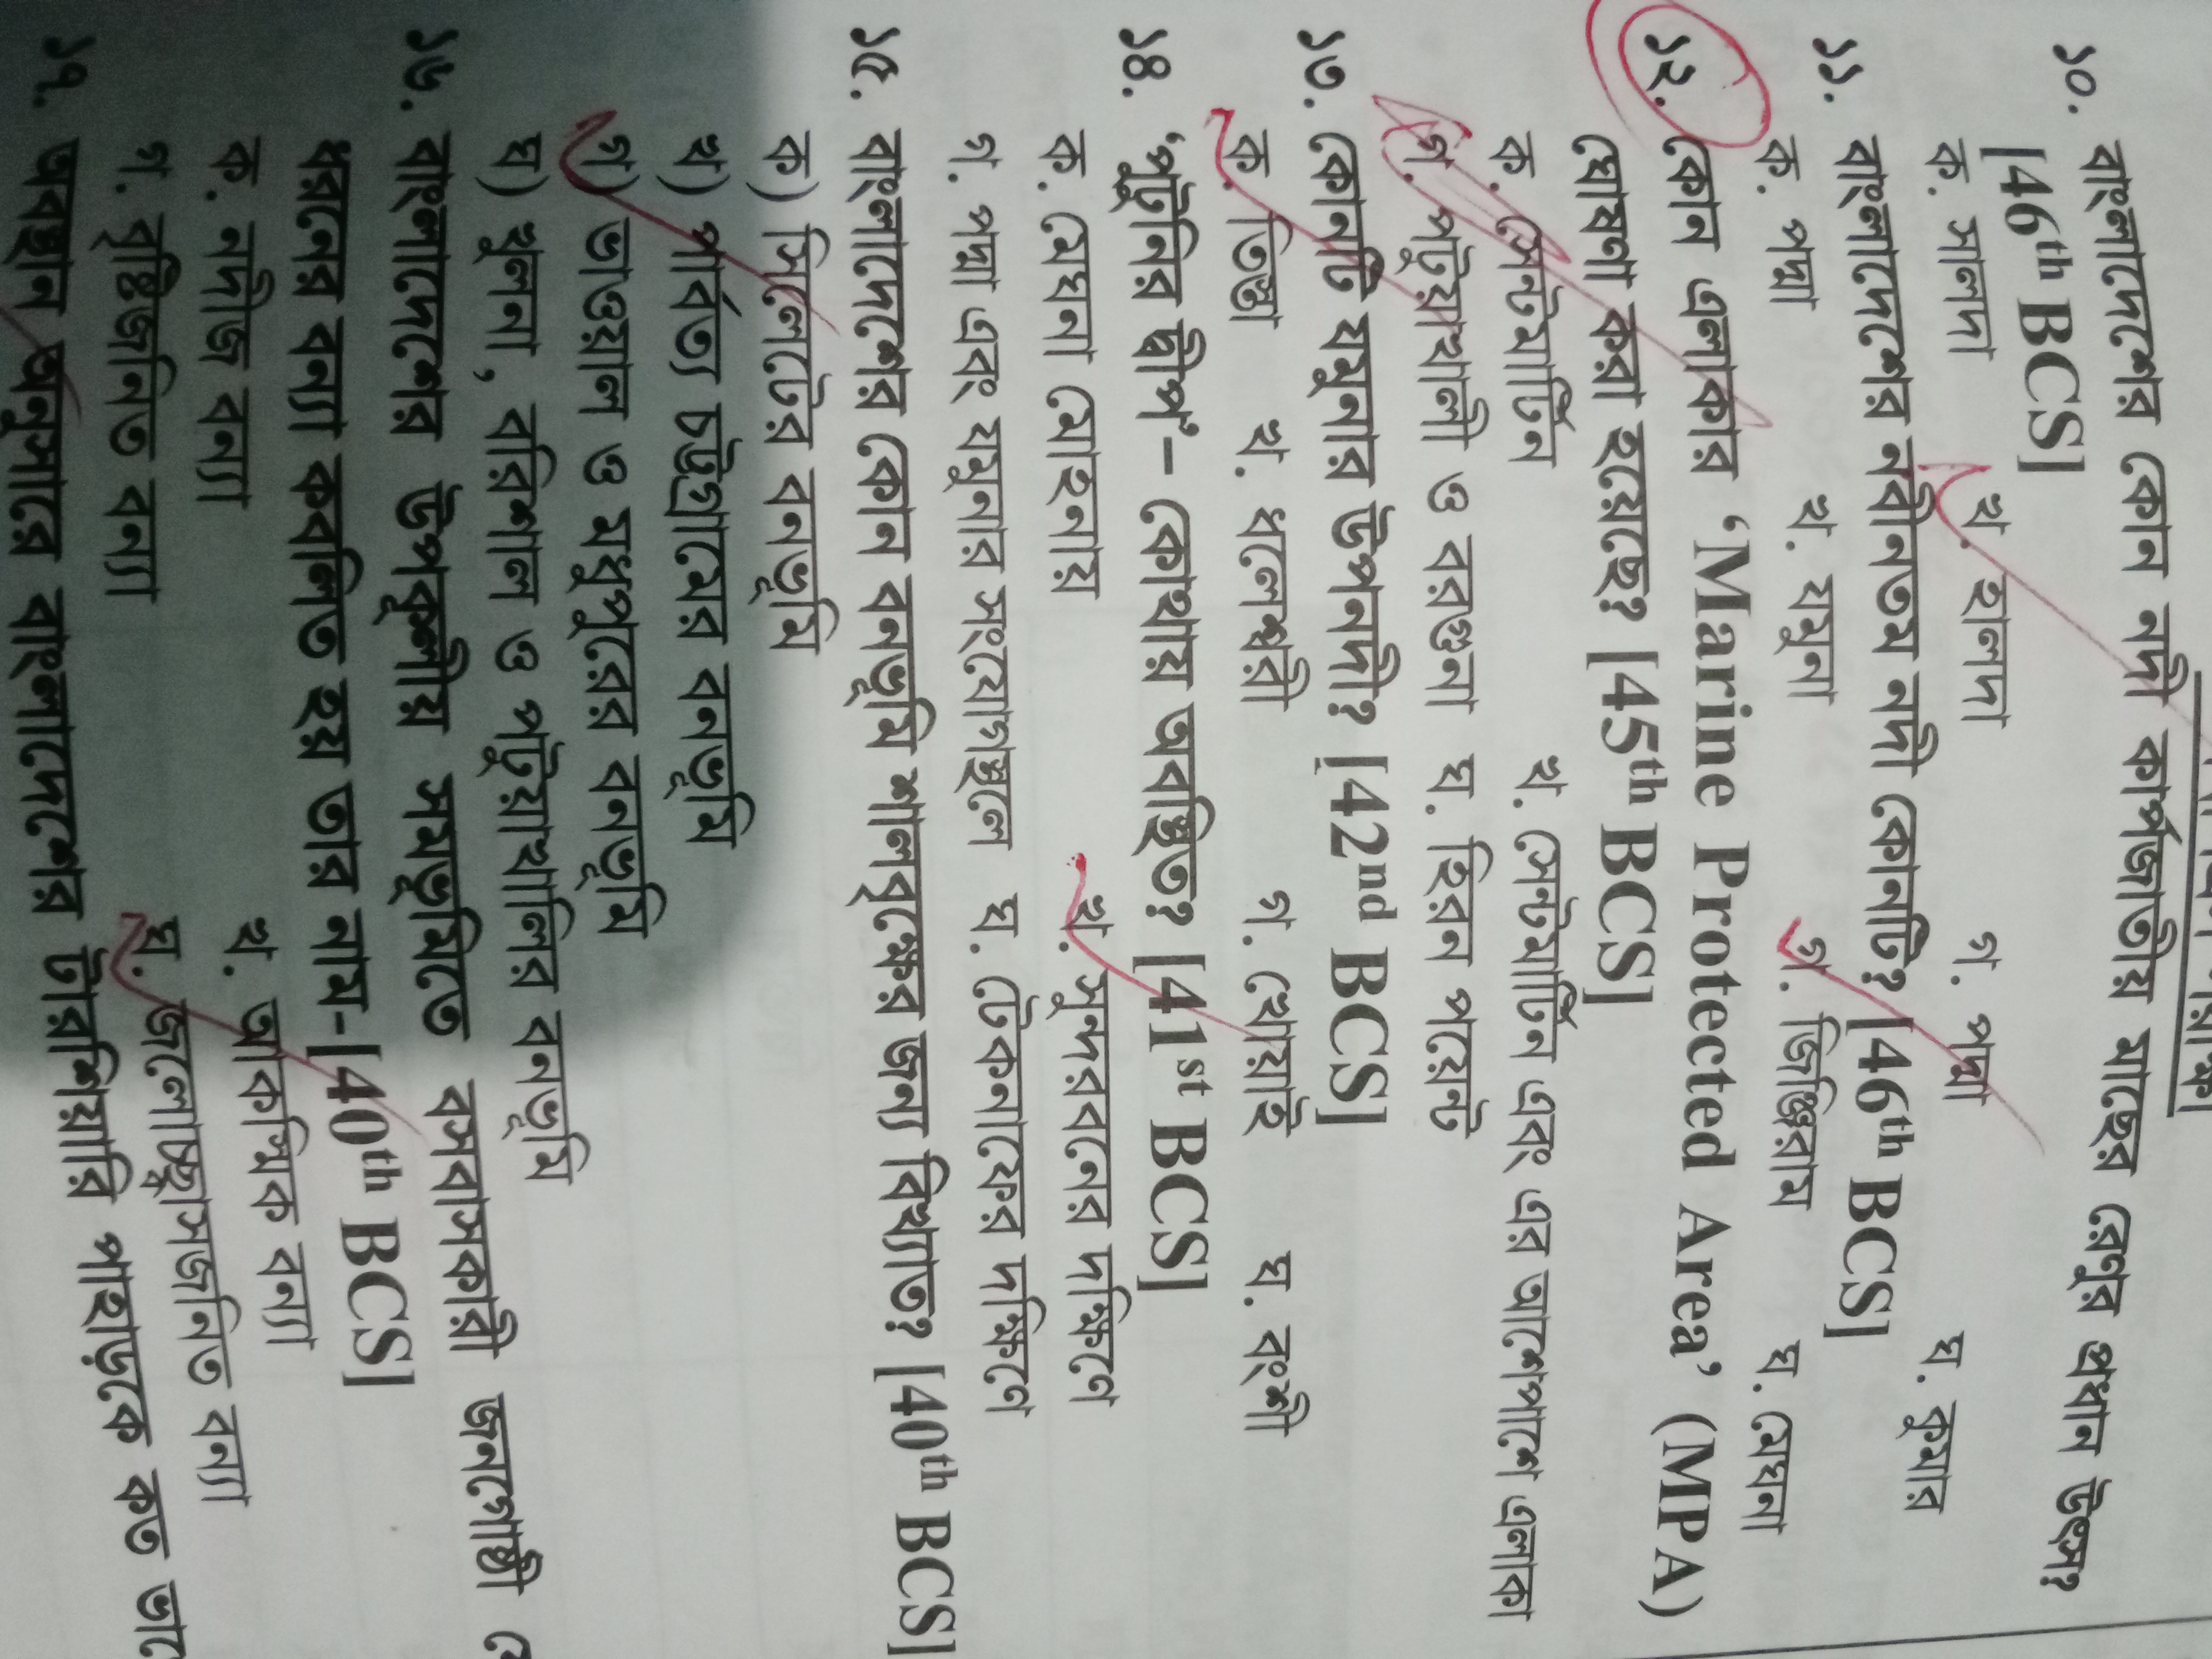 ১০. বাংলাদেশের কোন নদী কার্পজাতীয় মাছের রেণুর প্রধান উৎস?
[46th BCS]
ক. সালদা খ. হালদা গ. পদ্মা ঘ. কুমার
১১. বাংলাদেশের নবীনতম নদী কোনটি? [46th BCS]
ক. পদ্মা খ. যমুনা গ. জিঞ্জিরাম ঘ. মেঘনা
১২. কোন এলাকার ‘Marine Protected Area’ (MPA)
ঘোষণা করা হয়েছে? [45th BCS]
ক. সেন্টমার্টিন খ. সেন্টমার্টিন এবং এর আশেপাশে এলাকা
গ. পটুয়াখালী ও বরগুনা ঘ. হিরন পয়েন্ট
১৩. কোনটি যমুনার উপনদী? [42nd BCS]
ক. তিস্তা খ. ধলেশ্বরী গ. ঘোয়াই ঘ. বংশী
১৪. ‘পুটনির দ্বীপ’– কোথায় অবস্থিত? [41st BCS]
ক. মেঘনা মোহনায় খ. সুন্দরবনের দক্ষিণে
গ. পদ্মা এবং যমুনার সংযোগস্থলে ঘ. টেকনাফের দক্ষিণে
১৫. বাংলাদেশের কোন বনভূমি শালবৃক্ষের জন্য বিখ্যাত? [40th BCS]
ক) সিলেটের বনভূমি
খ) পার্বত্য চট্টগ্রামের বনভূমি
গ) ভাওয়াল ও মধুপুরের বনভূমি
ঘ) খুলনা, বরিশাল ও পটুয়াখালির বনভূমি
১৬. বাংলাদেশের উপকূলীয় সমভূমিতে বসবাসকারী জনগোষ্ঠী
ধরনের বন্যা কবলিত হয় তার নাম- [40th BCS]
ক. নদীজ বন্যা খ. আকস্মিক বন্যা
গ. বৃষ্টিজনিত বন্যা ঘ. জলোচ্ছ্বাসজনিত বন্যা
১৭. অবস্থান অনুসারে বাংলাদেশের টারশিয়ারি পাহাড়কে কত